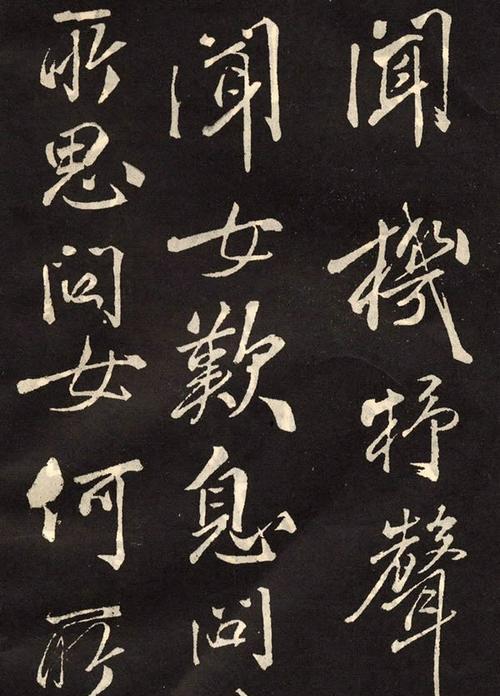 闻機杼聲
闻女歎息問
所思問女何所